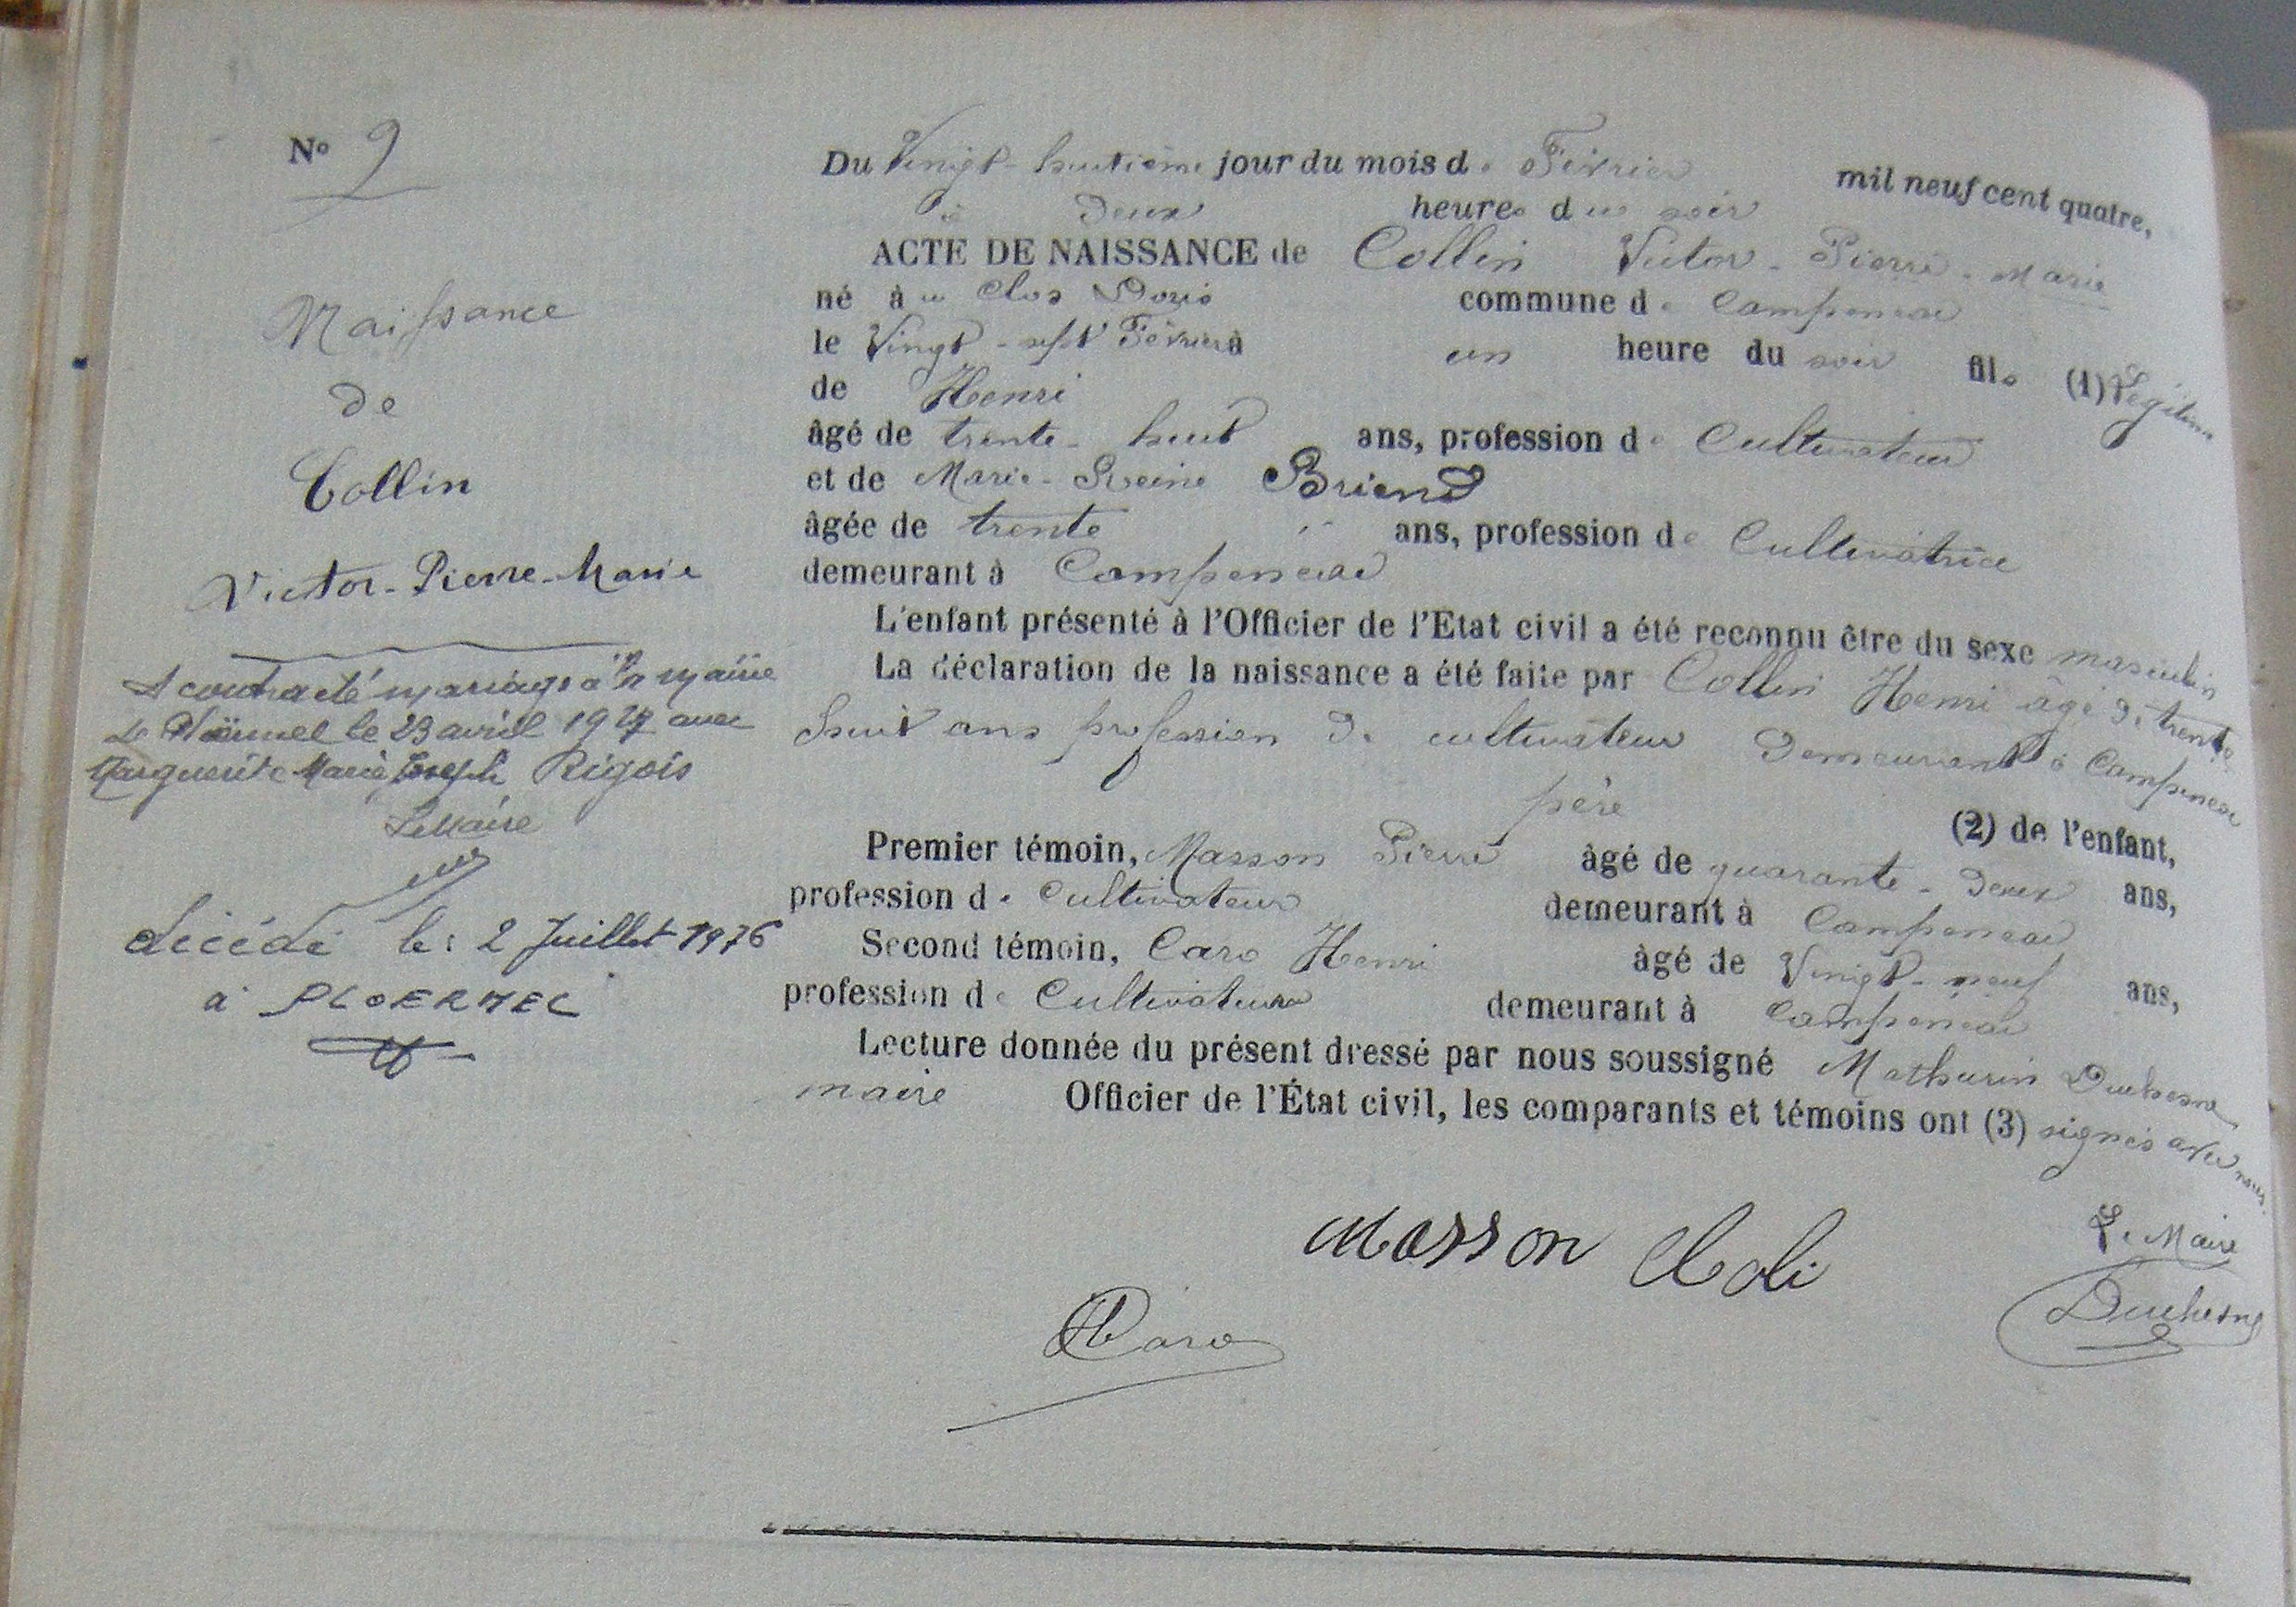 N° 9
Naissance
de
Collin
Victor-Pierre-Marie
A contracté mariage à la mairie
de Ploërmel le 23 avril 1927 avec
Marguerite Marie Joseph Rigois
Le Maire
décédé le : 2 Juillet 1976
à PLOERMEL
Du Vingt-huitième jour du mois de Février mil neuf cent quatre,
à deux heures du soir
ACTE DE NAISSANCE de Collin Victor-Pierre-Marie
né au Clos Doris commune de Campeneac
le Vingt-sept Février à un heure du soir fils (1) Légitime
de Henri
âgé de trente-huit ans, profession de Cultivateur
et de Marie-Reine Briend
âgée de trente ans, profession de Cultivatrice
demeurant à Campeneac
L'enfant présenté à l'Officier de l'Etat civil a été reconnu être du sexe masculin
La déclaration de la naissance a été faite par Collin Henri âgé de trente
huit ans profession de cultivateur demeurant à Campeneac
père (2) de l'enfant,
Premier témoin, Masson Pierre âgé de quarante-deux ans,
profession de Cultivateur demeurant à Campeneac
Second témoin, Caro Henri âgé de Vingt-neuf ans,
profession de Cultivateur demeurant à Campeneac
Lecture donnée du présent dressé par nous soussigné Mathurin Duchesne
maire Officier de l'État civil, les comparants et témoins ont (3) signés avec nous.
Masson
Le Maire
Duchesne
HCaro